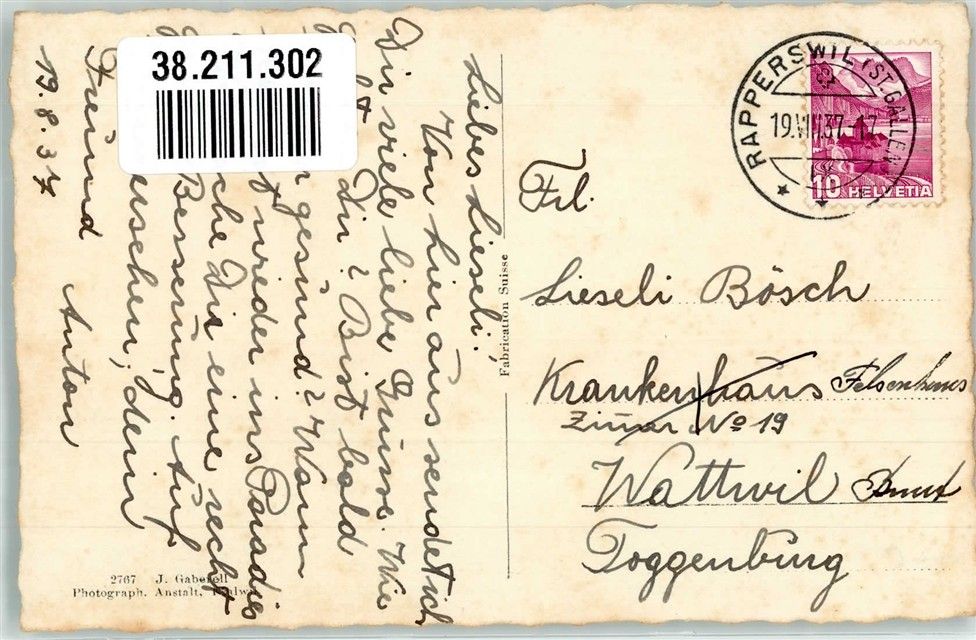 38.211.302
Liebes Lieseli!
Von hier aus sendet ich
Dir viele liebe Grüsse. Wie
Dir? Bist bald
gesünd? Wann
wieder ins Paradies
che Dir eine recht
Besserüng. Aüf
süschen, dein
Freünd Anton
19.8.37
Fabrication Suisse
2767 J. Gaberell
Photograph. Anstalt, Thalwil
RAPPERSWIL (ST. GALLEN)
19.VIII.37.17
10 HELVETIA
Frl.
Lieseli Bösch
Krankenhaüs Felsenhaus
No 19
Wattwil
Toggenbürg